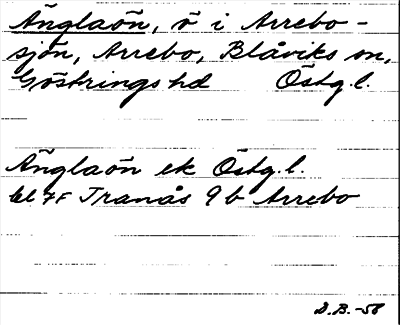 Änglaön, ö i Arrebo-
sjön, Arrebo, Blåviks sn,
Göstrings hd Östg.l.
Änglaön ek Östg.l.
bl 7F Tranås 9b Arrebo
D.B.-58